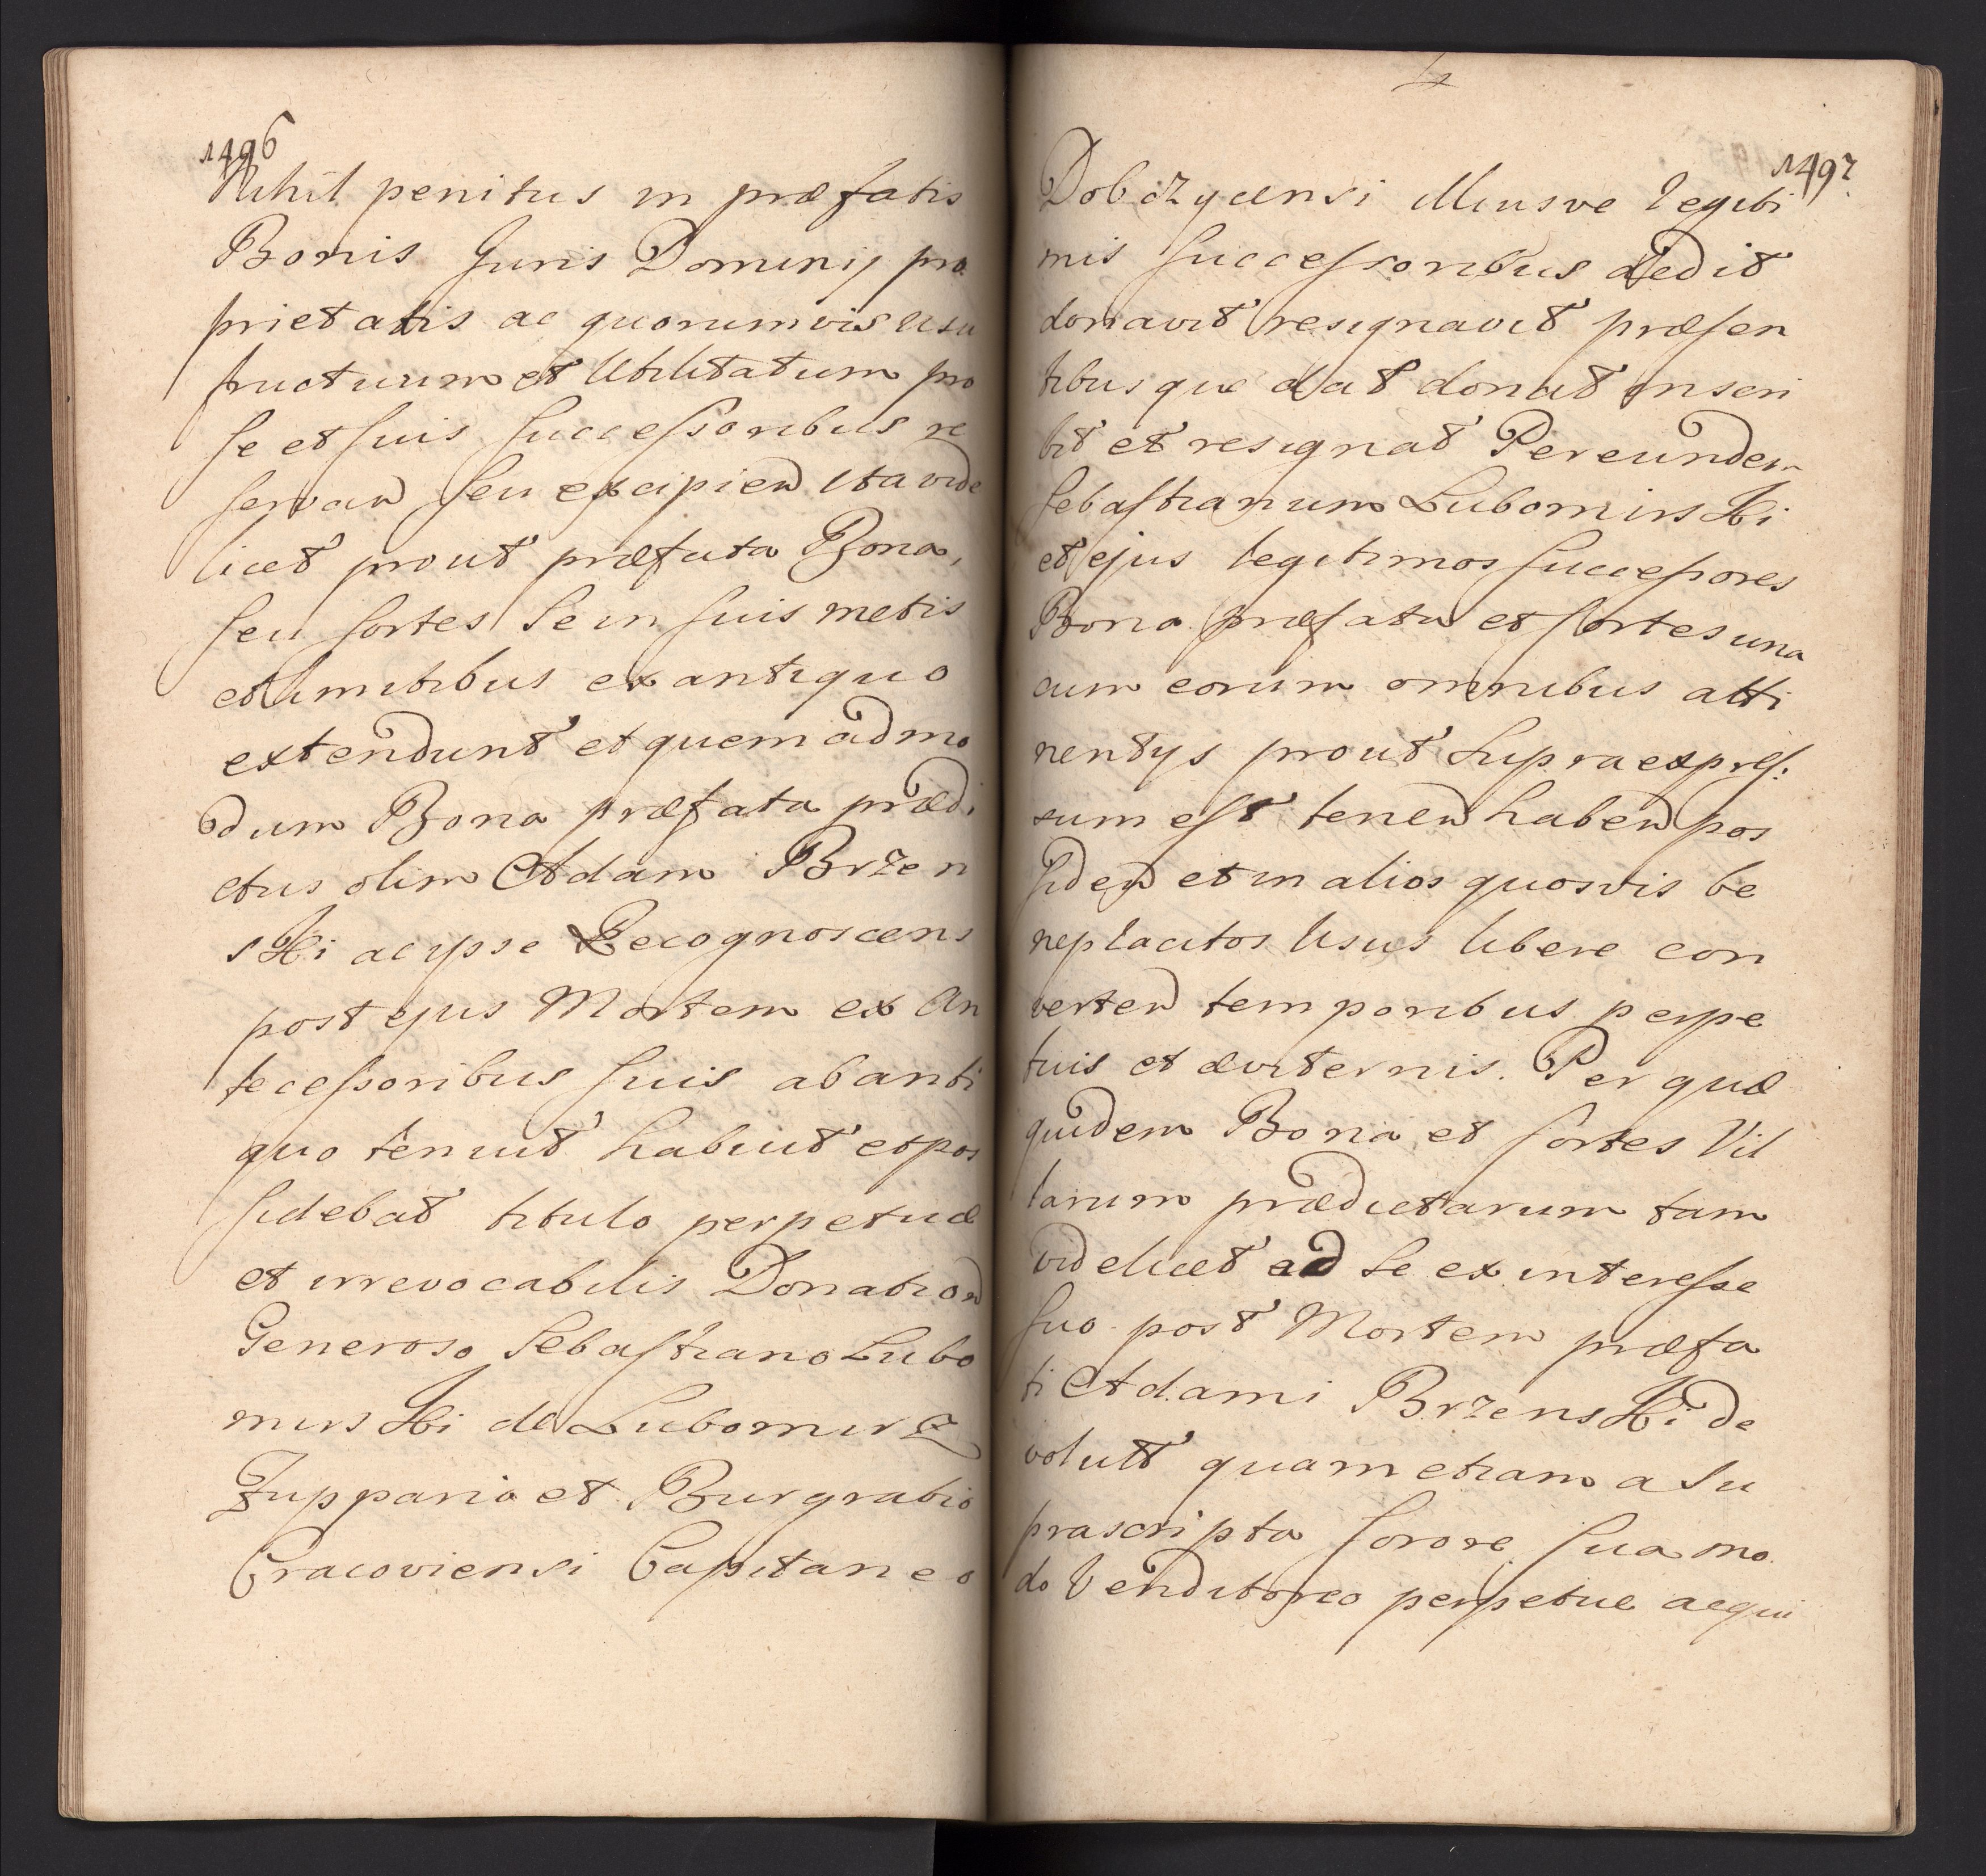 1496
Nihil penitus in præfatis
Bonis Juris Dominij pro
prietatis ac quorumvis usu
fructuum et Utilitatum pro
se et suis successoribus re
servan seu excipien ita vide
licet prout præfata Bona,
seu sortes se in suis metis
et limitibus ex antiquo
extendunt et quem admo
dum Bona præfata prædi
ctus olim Adam Brzen
ski ac ipse Recognoscens
post ejus Mortem ex An
tecessoribus suis ab anti
quo tenuit habuit et pos
sidebat titulo perpetuæ
et irrevocabilis Donation
Generoso Sebastiano Lubo
mirski de Lubomirz
Zuppario et Burgrabio
Cracoviensi Capitaneo
1497
Dobczycensi illiusve legiti
mis successoribus dedit
donavit resignavit præsen
tibusque dat donat inscri
bit et resignat Per eundem
Sebastianum Lubomirski
et ejus legitimos successores
Bona præfata et sortes una
cum eorum omnibus atti
nentys prout supra expres:
sum est tenen haben pos
siden et in alios quosvis be
neplacitos Usus libere con
verten temporibus perpe
tuis et æviternis. Per quæ
quidem Bona et sortes Vil
larum prædictarum tam
videlicet ad se ex interesse
suo post Mortem præfa
ti Adami Brzenski de
volutt quam etiam a su
prascripta sorore sua mo
do Venditoreo perpetue acqui